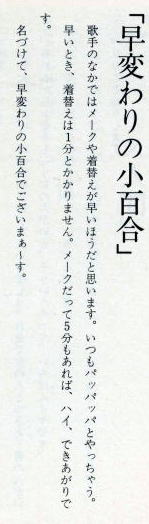 「早変わりの小百合」
歌手のなかではメークや着替えが早いほうだと思います。いつもパッパッパとやっちゃう。
早いとき、着替えは1分とかかりません。メークだって5分もあれば、ハイ、できあがりで
す。
名づけて、早変わりの小百合でございまぁ〜す。